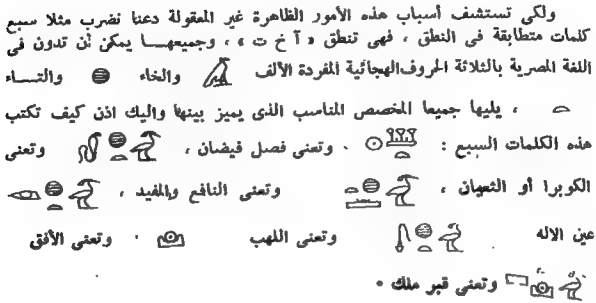 ولكى تستشف أسباب هذه الأمور الظاهرة غير المعقولة دعنا نضرب مثلا سبع
كلمات متطابقة فى النطق ، فهى تنطق « آ خ ت » ، وجميعهـــا يمكن أن تدون فى
اللغة المصرية بالثلاثة الحروف الهجائية المفردة الألف والخاء والتـــاء
، يليها جميعا المخصص المناسب الذى يميز بينها واليك اذن كيف تكتب
هذه الكلمات السبع : . وتعنى فصل فيضان ، وتعنى
الكوبرا أو الثعبان ، وتعنى النافع والمفيد ،
عين الاله وتعنى اللهب . وتعنى الأفق
وتعنى قبر ملك .